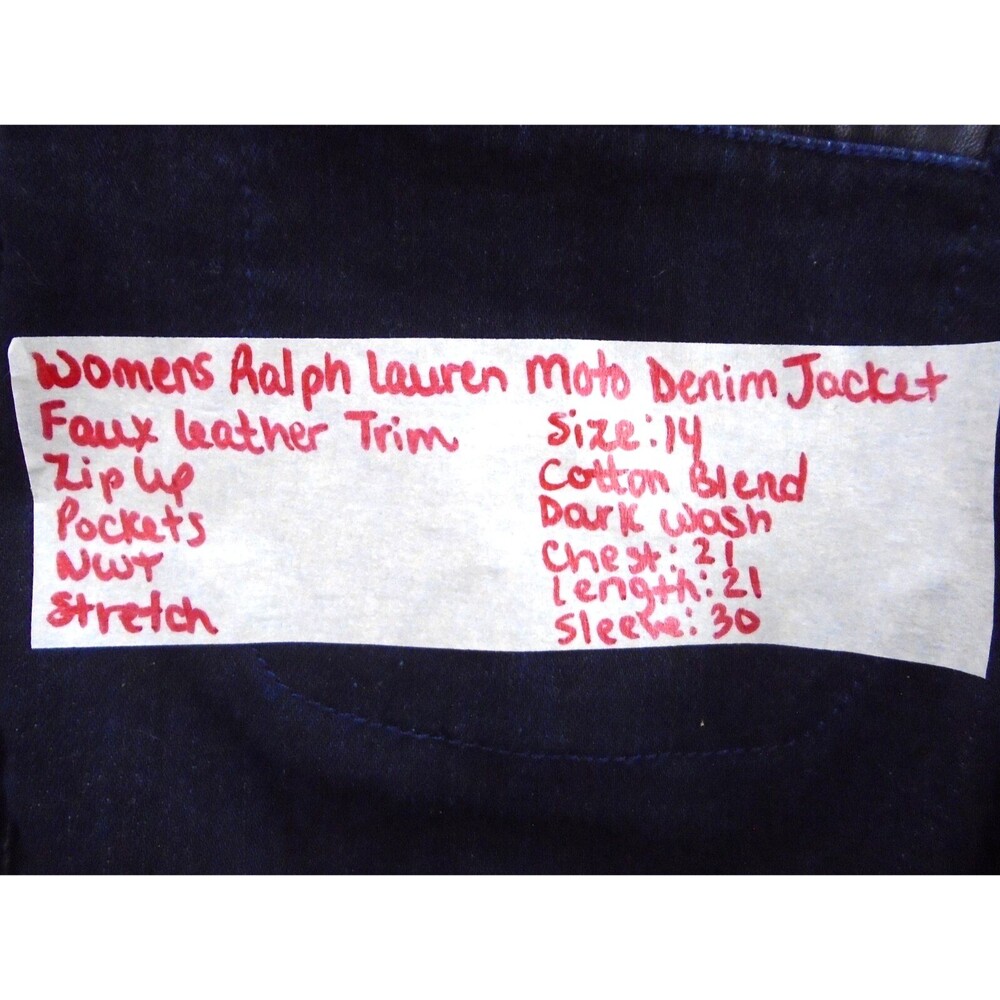 Womens Ralph Lauren Moto Denim Jacket
Faux leather Trim
Zip Up
Pockets
NWT
Stretch
Size: 14
Cotton Blend
Dark wash
Chest: 21
Length: 21
Sleeve: 30